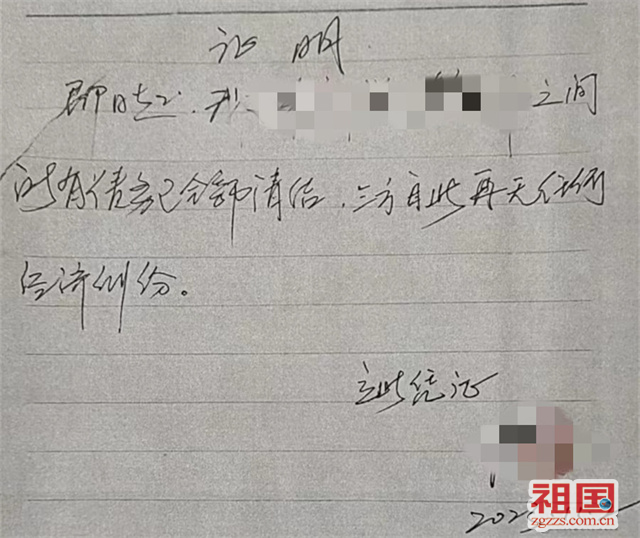 证明
即日起、我 之间
所有债务已全部清结、三方自此再无任何
经济纠纷。
立此凭证
202
祖国
zgzzs.com.cn